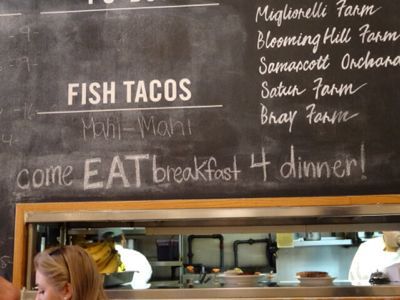 FISH TACOS
Mahi-Mahi
Migliorelli Farm
Blooming Hill Farm
Samascott Orchard
Satur Farm
Bray Farm
come EAT breakfast 4 dinner!